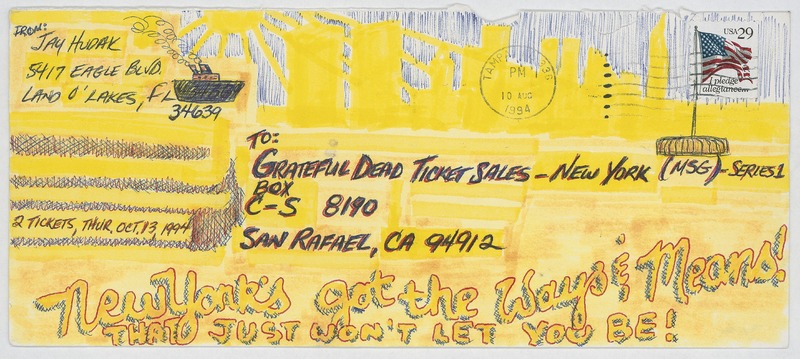 FROM:
JAY HUDAK
5417 EAGLE BLVD.
LAND O' LAKES, FL
34639
TAMPA
PM
10 AUG
1994
USA 29
I pledge
allegiance...
TO:
GRATEFUL DEAD TICKET SALES - NEW YORK (MSG) - SERIES 1
BOX
C-S 8190
SAN RAFAEL, CA 94912
2 TICKETS, THUR. OCT. 13, 1994
New York's got the Ways & Means!
THAT JUST WON'T LET YOU BE!